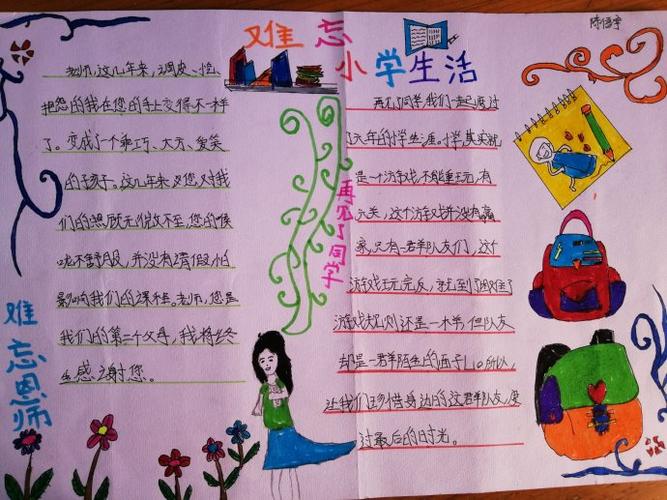 难忘
小学生活
陈信宇
难忘恩师
老师,这几年来,调皮、性
把您的我在您的手上变得不一样
了。变成了个乖巧、大方、爱笑
的孩子。这几年来义您对我
们的照顾无微不至,您的喉
咙不舒服,并没有请假,怕
影响我们的课程。老师,您是
我们的第二个父母,我将终
生感谢您。
再见了同学
再见了同学,我们一起度过
了六年的小学生涯。小学,其实就
是一个游戏,不能重玩,有
六关,这个游戏并没有赢
家,只有一群队友们,这个
游戏玩完后,就到了
游戏规则还是一样,但队友
却是一群陌生的面子儿。所以,
让我们珍惜身边的这群队友,度
过最后的时光。